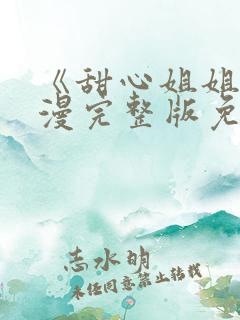 《甜心姐姐
漫完整版免
志水明
未经同意禁止转载